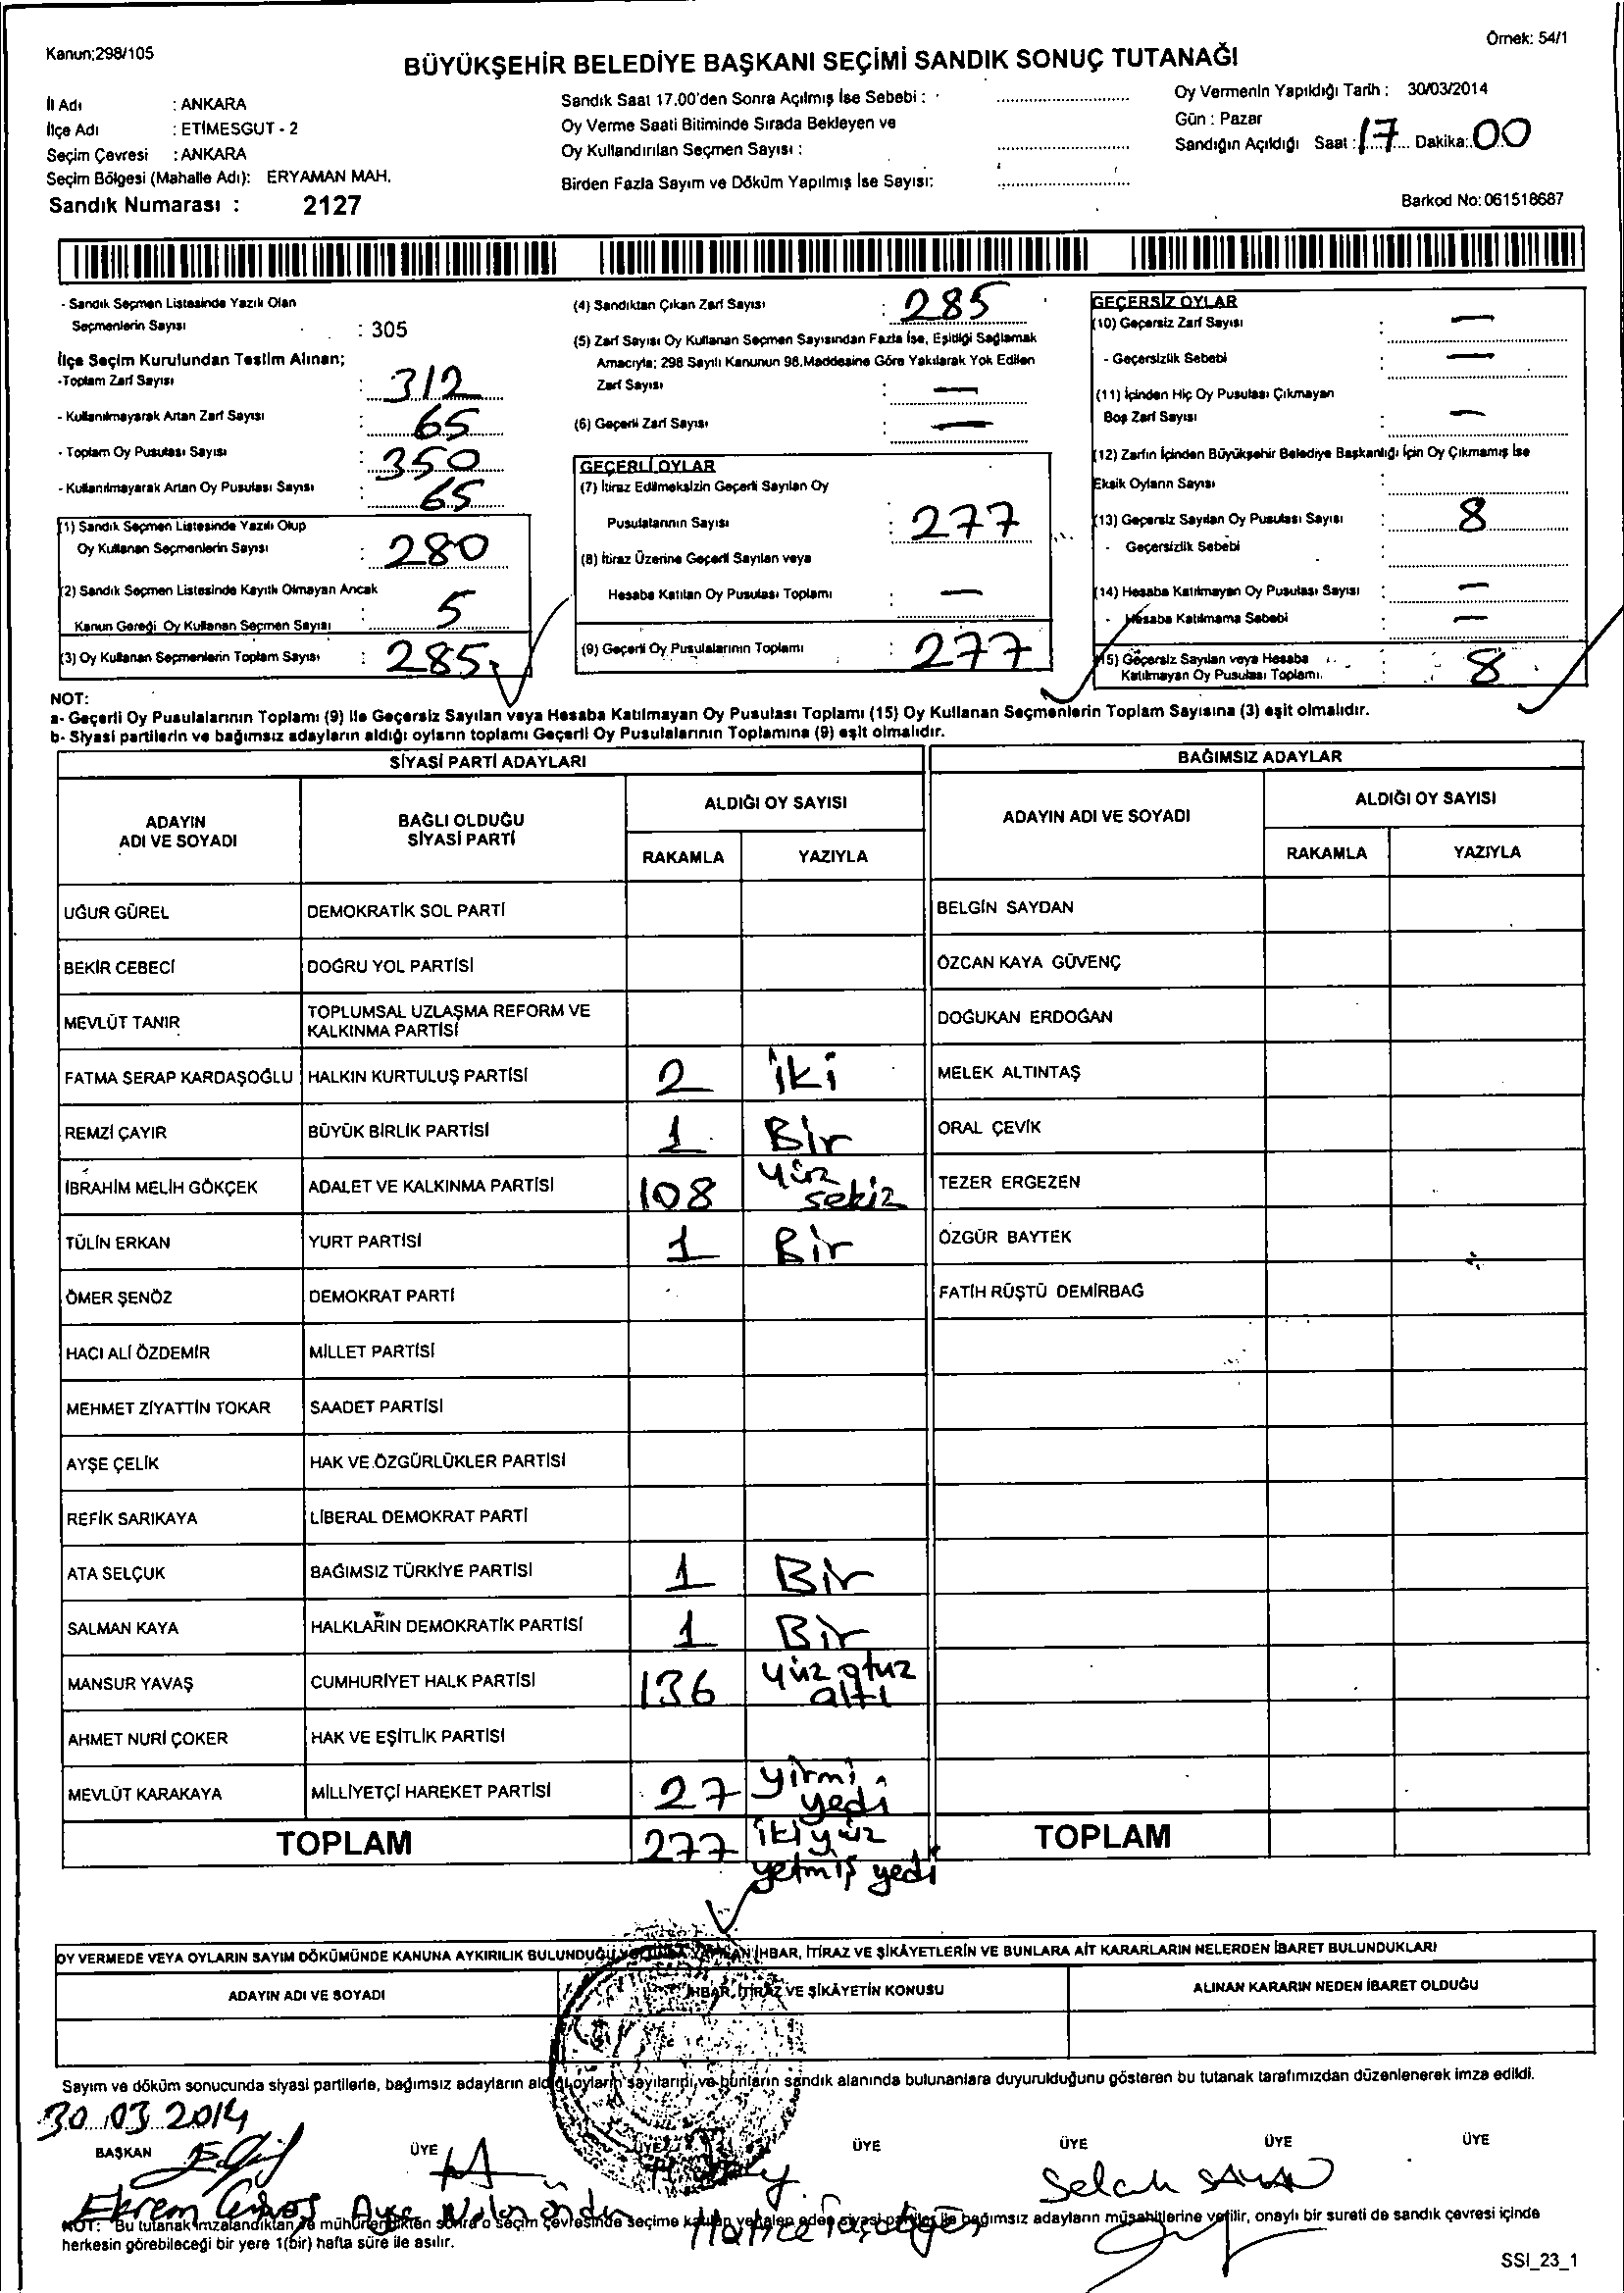 Kanun;298/105
Örnek: 54/1
BÜYÜKŞEHİR BELEDİYE BAŞKANI SEÇİMİ SANDIK SONUÇ TUTANAĞI
İl Adı : ANKARA
İlçe Adı : ETİMESGUT - 2
Seçim Çevresi : ANKARA
Seçim Bölgesi (Mahalle Adı): ERYAMAN MAH.
Sandık Numarası : 2127
Sandık Saat 17.00'den Sonra Açılmış İse Sebebi :
Oy Verme Saati Bitiminde Sırada Bekleyen ve
Oy Kullandırılan Seçmen Sayısı :
Birden Fazla Sayım ve Döküm Yapılmış İse Sayısı:
Oy Vermenin Yapıldığı Tarih : 30/03/2014
Gün : Pazar
Sandığın Açıldığı Saat : 17 Dakika: 00
Barkod No: 061518687
- Sandık Seçmen Listesinde Yazılı Olan
Seçmenlerin Sayısı : 305
İlçe Seçim Kurulundan Teslim Alınan;
-Toplam Zarf Sayısı : 312
- Kullanılmayarak Artan Zarf Sayısı : 65
- Toplam Oy Pusulası Sayısı : 350
- Kullanılmayarak Artan Oy Pusulası Sayısı : 65
(1) Sandık Seçmen Listesinde Yazılı Olup
Oy Kullanan Seçmenlerin Sayısı : 280
(2) Sandık Seçmen Listesinde Kayıtlı Olmayan Ancak
Kanun Gereği Oy Kullanan Seçmen Sayısı : 5
(3) Oy Kullanan Seçmenlerin Toplam Sayısı : 285
(4) Sandıktan Çıkan Zarf Sayısı : 285
(5) Zarf Sayısı Oy Kullanan Seçmen Sayısından Fazla İse, Eşitliği Sağlamak
Amacıyla; 298 Sayılı Kanunun 98.Maddesine Göre Yakılarak Yok Edilen
Zarf Sayısı : —
(6) Geçerli Zarf Sayısı : —
GEÇERLİ OYLAR
(7) İtiraz Edilmeksizin Geçerli Sayılan Oy
Pusulalarının Sayısı : 277
(8) İtiraz Üzerine Geçerli Sayılan veya
Hesaba Katılan Oy Pusulası Toplamı : —
(9) Geçerli Oy Pusulalarının Toplamı : 277
GEÇERSİZ OYLAR
(10) Geçersiz Zarf Sayısı : —
- Geçersizlik Sebebi : —
(11) İçinden Hiç Oy Pusulası Çıkmayan
Boş Zarf Sayısı : —
(12) Zarfın İçinden Büyükşehir Belediye Başkanlığı İçin Oy Çıkmamış İse
Eksik Oyların Sayısı :
(13) Geçersiz Sayılan Oy Pusulası Sayısı : 8
- Geçersizlik Sebebi :
(14) Hesaba Katılmayan Oy Pusulası Sayısı : —
- Hesaba Katılmama Sebebi : —
(15) Geçersiz Sayılan veya Hesaba
Katılmayan Oy Pusulası Toplamı. : 8
NOT:
a- Geçerli Oy Pusulalarının Toplamı (9) ile Geçersiz Sayılan veya Hesaba Katılmayan Oy Pusulası Toplamı (15) Oy Kullanan Seçmenlerin Toplam Sayısına (3) eşit olmalıdır.
b- Siyasi partilerin ve bağımsız adayların aldığı oyların toplamı Geçerli Oy Pusulalarının Toplamına (9) eşit olmalıdır.
SİYASİ PARTİ ADAYLARI
ADAYIN ADI VE SOYADI BAĞLI OLDUĞU SİYASİ PARTİ ALDIĞI OY SAYISI
RAKAMLA YAZIYLA
UĞUR GÜREL DEMOKRATİK SOL PARTİ
BEKİR CEBECİ DOĞRU YOL PARTİSİ
MEVLÜT TANIR TOPLUMSAL UZLAŞMA REFORM VE KALKINMA PARTİSİ
FATMA SERAP KARDAŞOĞLU HALKIN KURTULUŞ PARTİSİ 2 iki
REMZİ ÇAYIR BÜYÜK BİRLİK PARTİSİ 1 Bir
İBRAHİM MELİH GÖKÇEK ADALET VE KALKINMA PARTİSİ 108 yüz sekiz
TÜLİN ERKAN YURT PARTİSİ 1 Bir
ÖMER ŞENÖZ DEMOKRAT PARTİ
HACI ALİ ÖZDEMİR MİLLET PARTİSİ
MEHMET ZİYATTİN TOKAR SAADET PARTİSİ
AYŞE ÇELİK HAK VE ÖZGÜRLÜKLER PARTİSİ
REFİK SARIKAYA LİBERAL DEMOKRAT PARTİ
ATA SELÇUK BAĞIMSIZ TÜRKİYE PARTİSİ 1 Bir
SALMAN KAYA HALKLARIN DEMOKRATİK PARTİSİ 1 Bir
MANSUR YAVAŞ CUMHURİYET HALK PARTİSİ 136 yüz otuz altı
AHMET NURİ ÇOKER HAK VE EŞİTLİK PARTİSİ
MEVLÜT KARAKAYA MİLLİYETÇİ HAREKET PARTİSİ 27 yirmi yedi
TOPLAM 277 iki yüz yetmiş yedi
BAĞIMSIZ ADAYLAR
ADAYIN ADI VE SOYADI ALDIĞI OY SAYISI
RAKAMLA YAZIYLA
BELGİN SAYDAN
ÖZCAN KAYA GÜVENÇ
DOĞUKAN ERDOĞAN
MELEK ALTINTAŞ
ORAL ÇEVİK
TEZER ERGEZEN
ÖZGÜR BAYTEK
FATİH RÜŞTÜ DEMİRBAĞ
TOPLAM
OY VERMEDE VEYA OYLARIN SAYIM DÖKÜMÜNDE KANUNA AYKIRILIK BULUNDUĞU İHBAR, İTİRAZ VE ŞİKÂYETLERİN VE BUNLARA AİT KARARLARIN NELERDEN İBARET BULUNDUKLARI
ADAYIN ADI VE SOYADI İHBAR, İTİRAZ VE ŞİKÂYETİN KONUSU ALINAN KARARIN NEDEN İBARET OLDUĞU
Sayım ve döküm sonucunda siyasi partilerle, bağımsız adayların aldığı oyların sayılarını ve bunların sandık alanında bulunanlara duyurulduğunu gösteren bu tutanak tarafımızdan düzenlenerek imza edildi.
30.03.2014
BAŞKAN ÜYE ÜYE ÜYE ÜYE ÜYE ÜYE
Selah
Ekrem Ayşe Hatice
NOT: Bu tutanak imzalandıktan ve mühürlendikten sonra o seçim çevresinde seçime katılan ve talep eden siyasi partiler ile bağımsız adayların müşahitlerine verilir, onaylı bir sureti de sandık çevresi içinde
herkesin görebileceği bir yere 1(bir) hafta süre ile asılır.
SSI_23_1